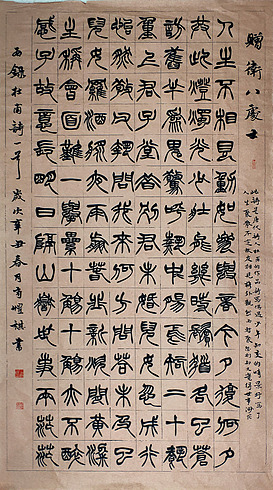 贈衛八處士
人生不相見動如參與商今夕復何夕
共此燈燭光少壯能幾時鬢髮各已蒼
訪舊半為鬼驚呼熱中腸焉知二十載
重上君子堂昔別君未婚兒女忽成行
怡然敬父執問我來何方問答乃未已
驅兒羅酒漿夜雨剪春韭新炊間黃粱
主稱會面難一舉累十觴十觴亦不醉
感子故意長明日隔山岳世事兩茫茫
錄杜甫詩一首 歲次辛丑春月 書